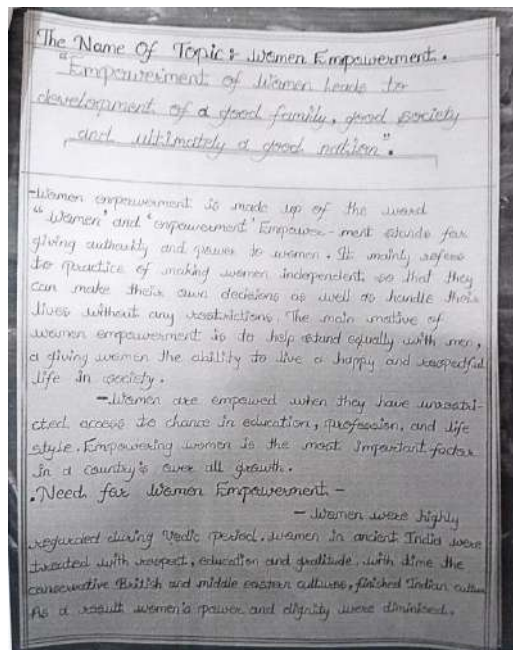 The Name Of Topic : Women Empowerment.
"Empowerment of Women Leads to
development of a good family, good society
and ultimately a good nation".
-Women empowerment is made up of the word
"Women' and 'empowerment' Empower-ment stands for
giving authority and power to women. It mainly refers
to practice of making women independent, so that they
can make their own decisions as well as handle their
lives without any restrictions. The main motive of
women empowerment is to help stand equally with men,
a giving women the ability to live a happy and respectful
life in society.
-Women are empowed when they have unrestri-
cted access to chance in education, profession, and life
style. Empowering women is the most important factor
in a country's over all growth.
. Need for Women Empowerment -
- Women were highly
regarded during Vedic period. women in ancient India were
treated with respect, education and gratitude. with time the
conservative British and middle eastern cultures, finished Indian culture
As a result women's power and dignity were diminised.